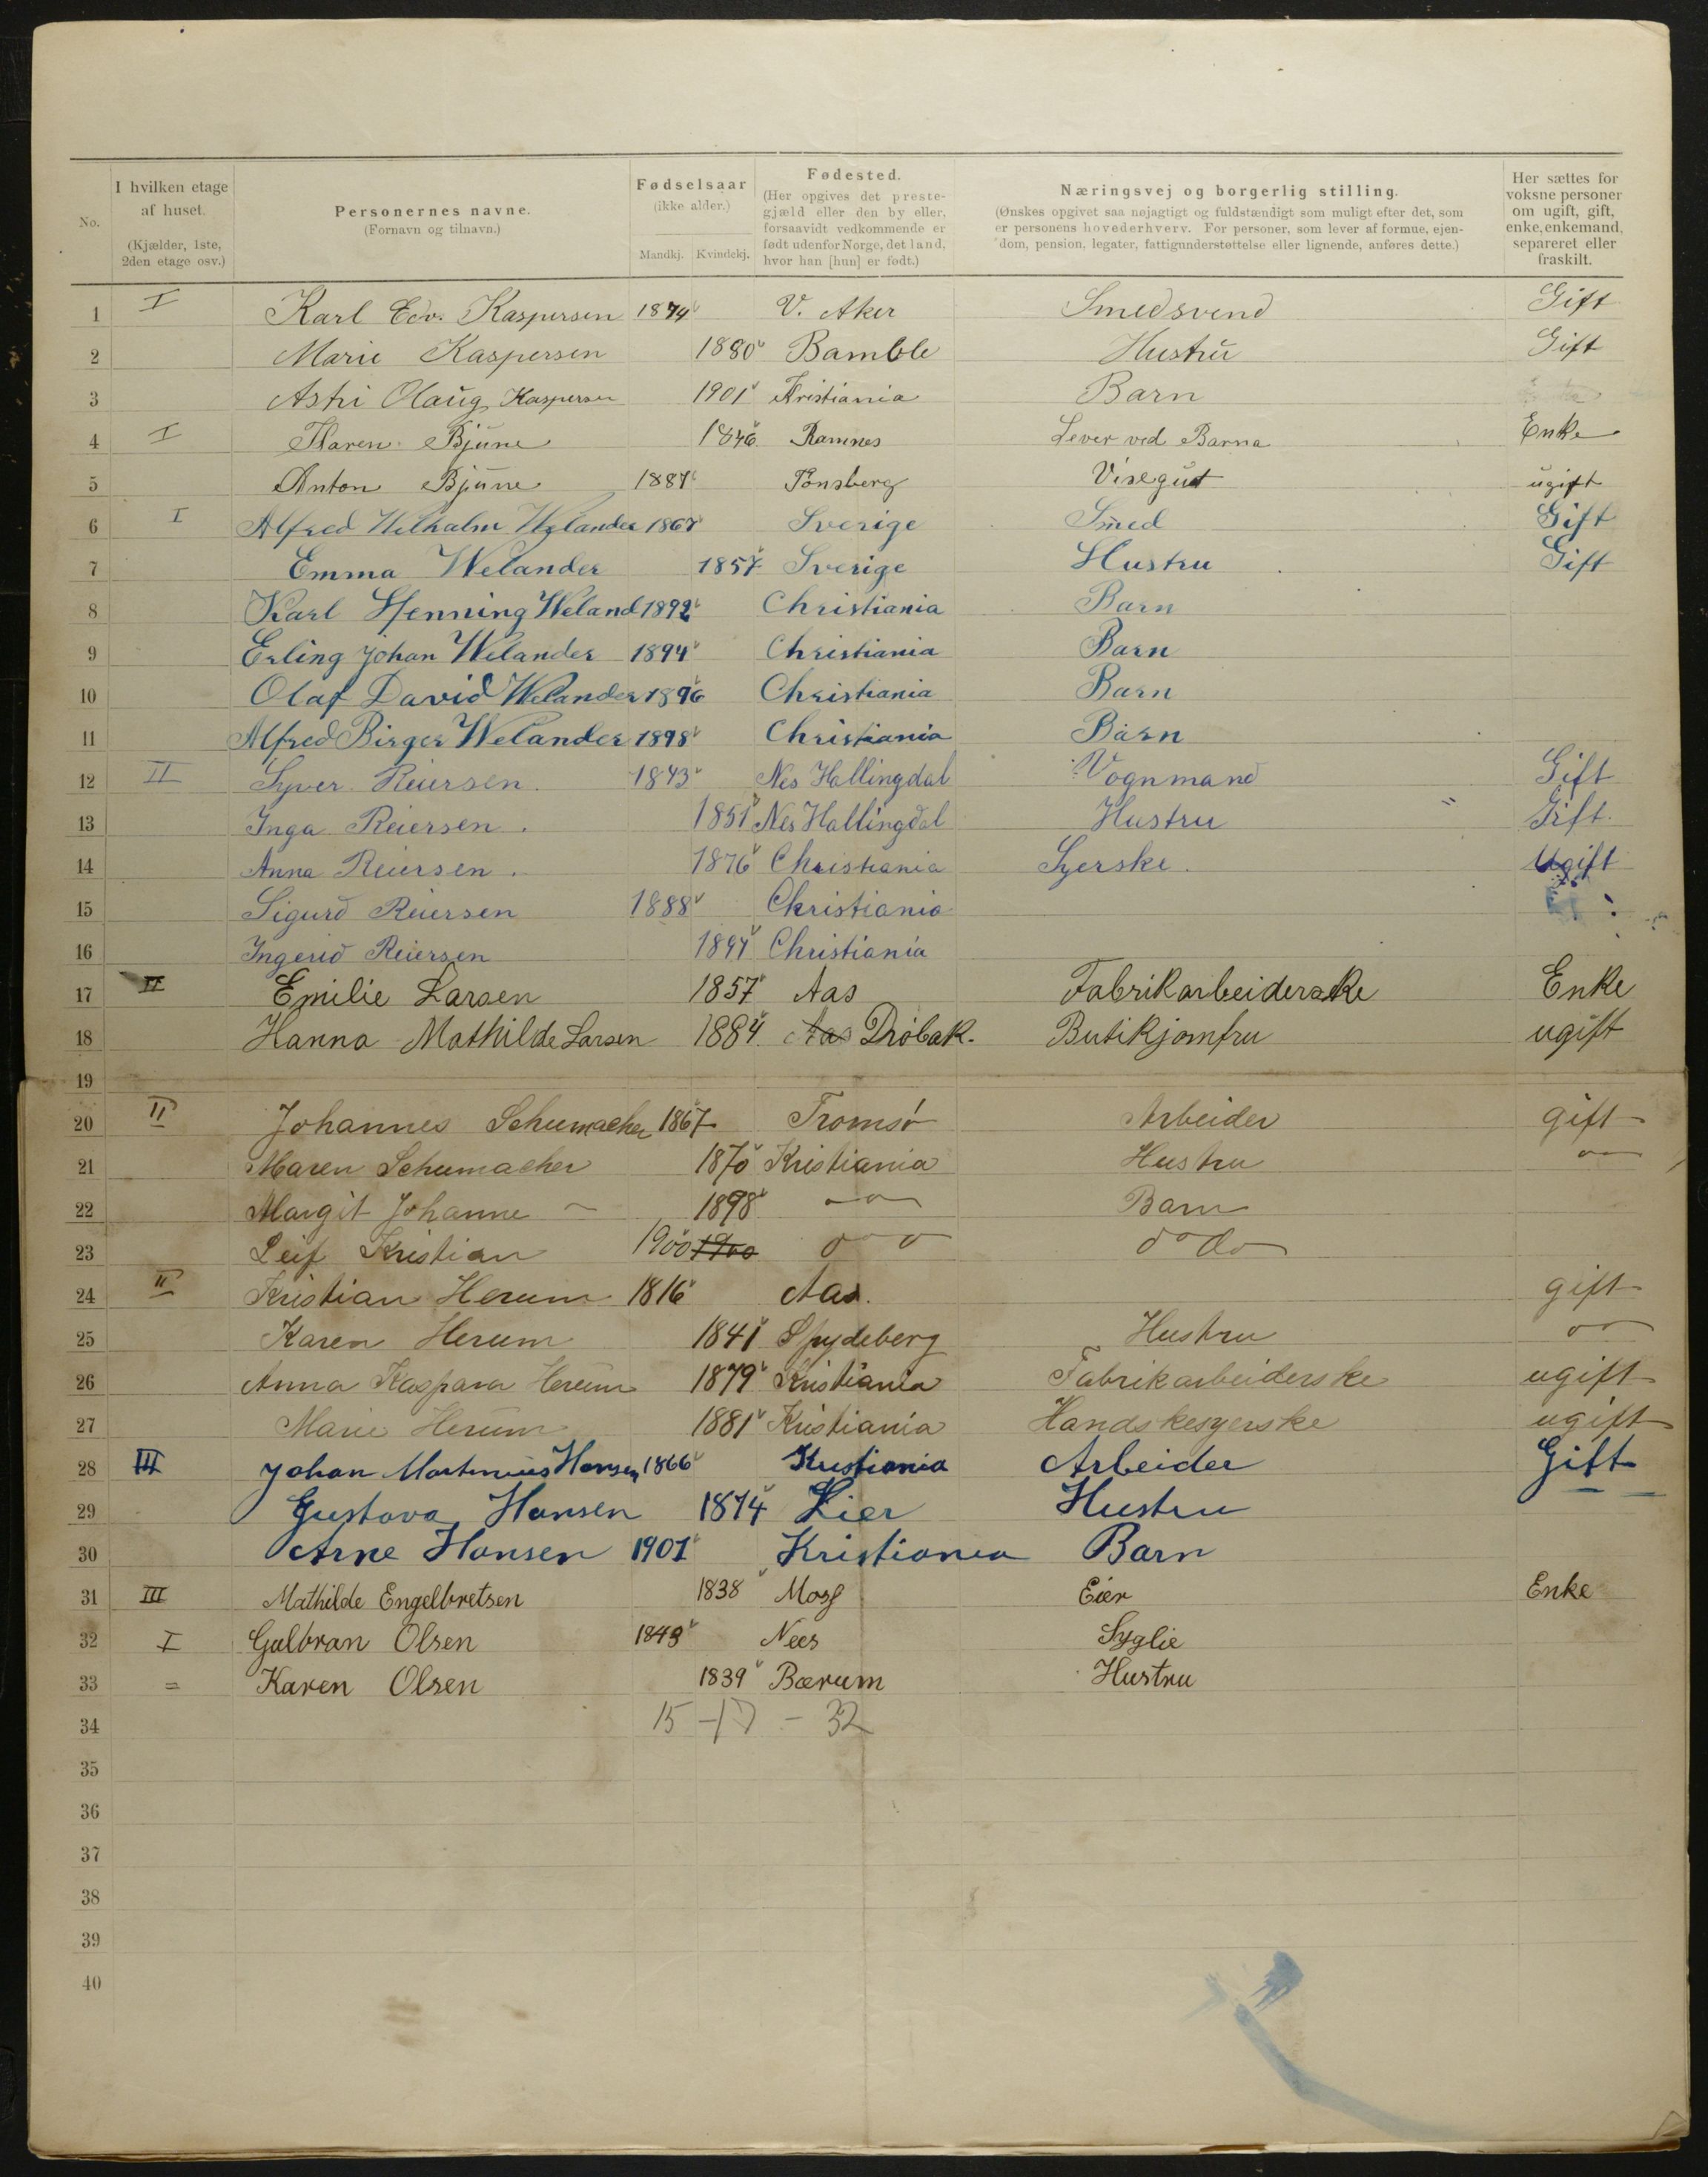 No. I hvilken etage af huset. (Kjælder, 1ste, 2den etage osv.) Personernes navne. (Fornavn og tilnavn.) Fødselsaar (ikke alder.) Mandkj. Kvindekj. Fødested. (Her opgives det prestegjæld eller den by eller, forsaavidt vedkommende er født udenfor Norge, det land, hvor han [hun] er født.) Næringsvej og borgerlig stilling. (Ønskes opgivet saa nøjagtigt og fuldstændigt som muligt efter det, som er personens hovederhverv. For personer, som lever af formue, ejendom, pension, legater, fattigunderstøttelse eller lignende, anføres dette.) Her sættes for voksne personer om ugift, gift, enke, enkemand, separeret eller fraskilt.
1 I Karl Edv. Kaspersen 1874 V. Aker Smedsvend Gift
2 Marie Kaspersen 1880 Bamble Hustru Gift
3 Astri Olaug Kaspersen 1901 Kristiania Barn
4 I Maren Bjune 1846 Ramnes Lever ved Barna Enke
5 Anton Bjune 1887 Tønsberg Visegut ugift
6 I Alfred Wilhalm Welander 1867 Sverige Smed Gift
7 Emma Welander 1857 Sverige Hustru Gift
8 Karl Henning Weland 1892 Christiania Barn
9 Erling Johan Welander 1894 Christiania Barn
10 Olaf David Welander 1896 Christiania Barn
11 Alfred Birger Welander 1898 Christiania Barn
12 II Syver Reiersen. 1843 Nes Hallingdal Vognmand Gift
13 Inga Reiersen. 1851 Nes Hallingdal Hustru Gift.
14 Anna Reiersen. 1876 Christiania Syerske. Ugift
15 Sigurd Reiersen 1888 Christiania
16 Ingerid Reiersen 1894 Christiania
17 II Emilie Larsen 1857 Aas Fabrikarbeiderske Enke
18 Hanna Mathilde Larsen 1884. Aas Drøbak. Butikjomfru ugift
19
20 II Johannes Schumacher 1867 Tromsø Arbeider gift
21 Maren Schumacher 1870 Kristiania Hustru
22 Margit Johanne 1898 Barn
23 Leif Kristian 1900 1900 do
24 II Kristian Herum 1816 Aas. gift
25 Karen Herum 1841 Spydeberg Hustru
26 Anna Kaspara Herum 1879 Kristiania Fabrikarbeiderske ugift
27 Marie Herum 1881 Kristiania Handskesyerske ugift
28 III Johan Martinius Hansen 1866 Kristiania Arbeider Gift
29 Gustava Hansen 1874 Lier Hustru
30 Arne Hansen 1901 Kristiania Barn
31 III Mathilde Engelbretsen 1838 Moss Eier Enke
32 I Gulbran Olsen 1843 Nees
33 = Karen Olsen 1839 Bærum Hustru
34 15 - 17 - 32
35
36
37
38
39
40